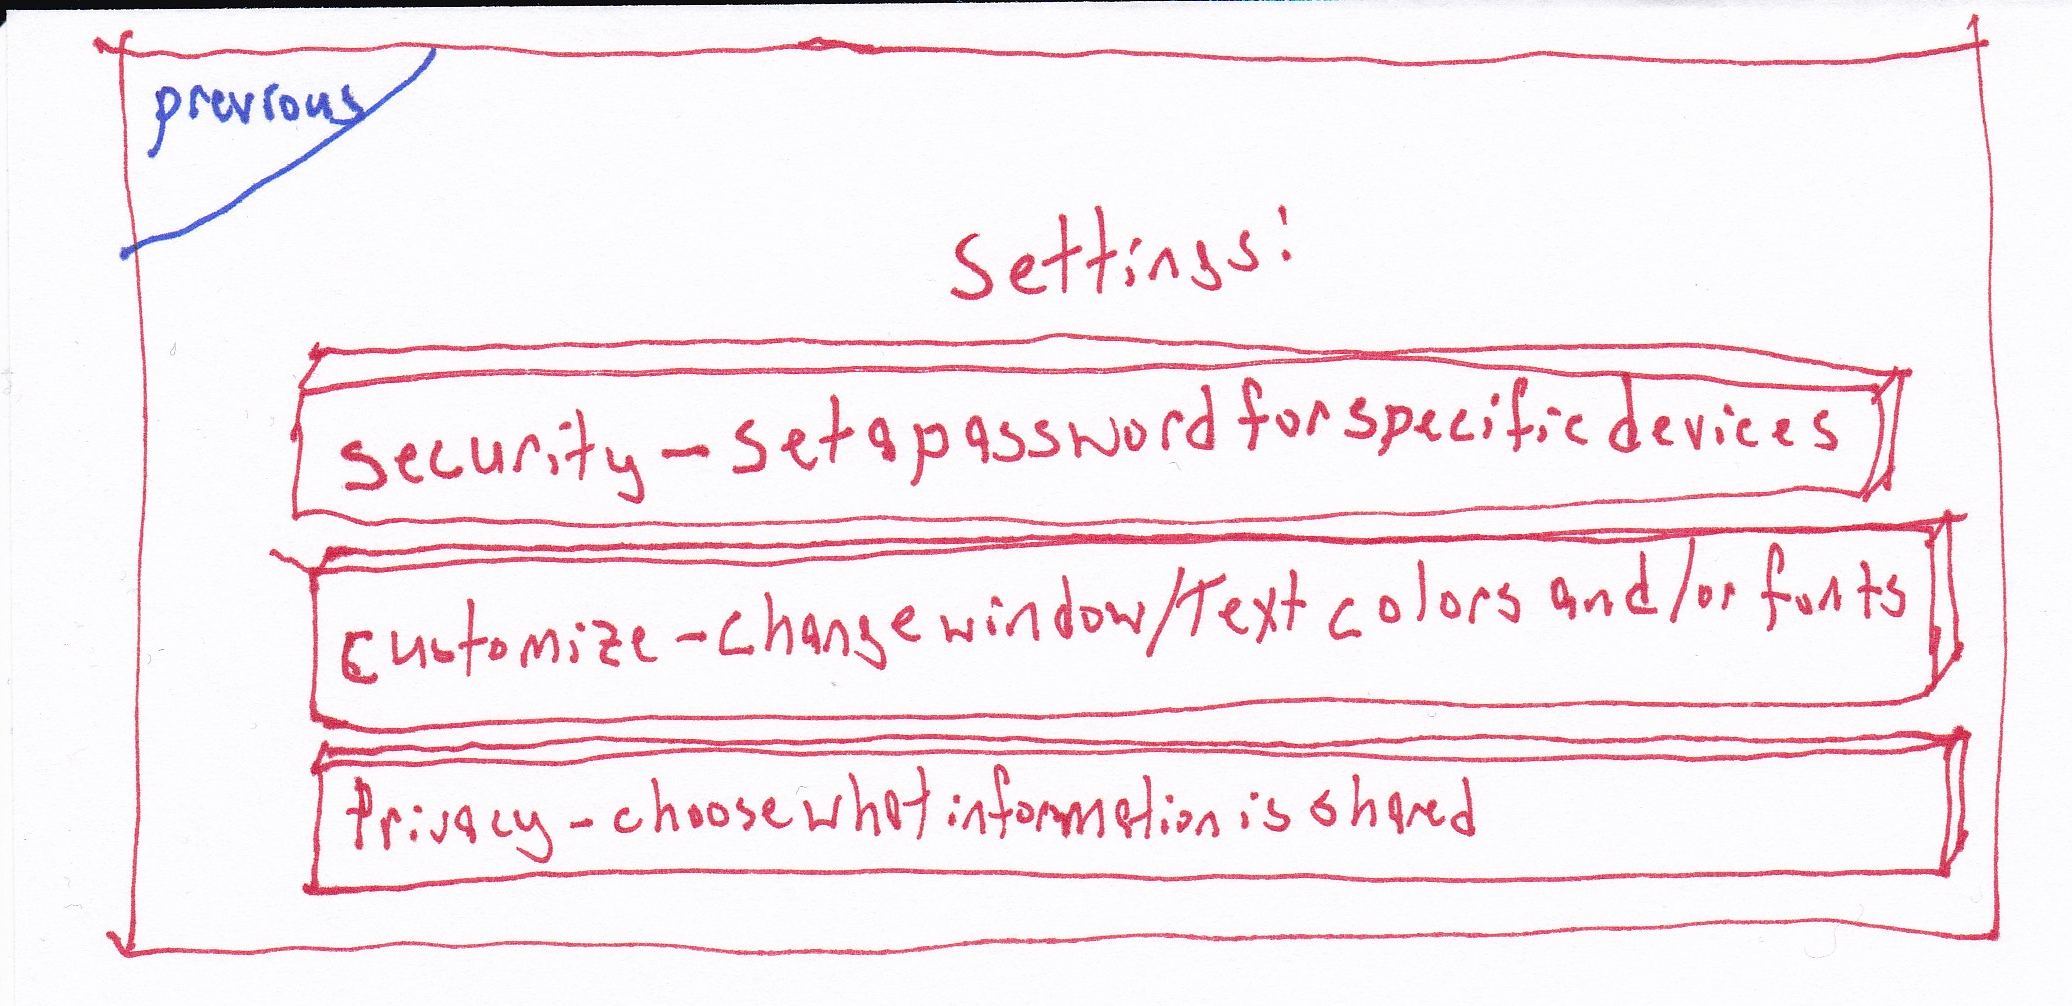 previous
Settings:
Security - Set a password for specific devices
Customize - change window/Text colors and/or fonts
Privacy - choose what information is shared